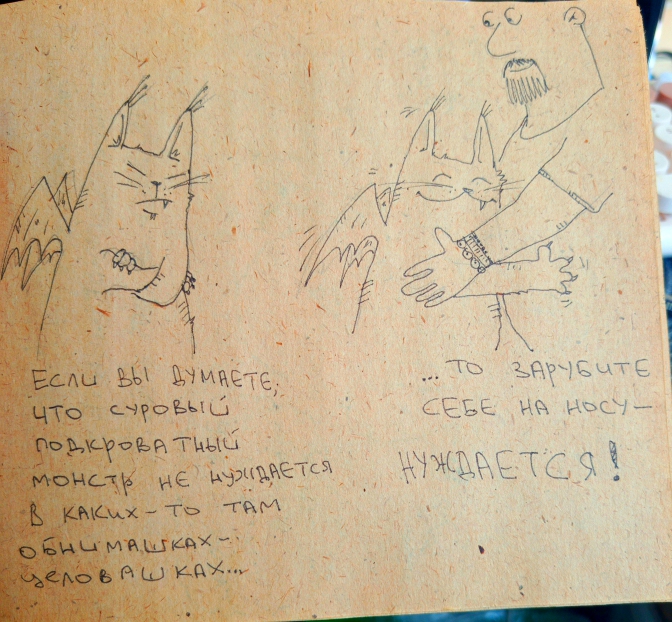 Если вы думаете,
что суровый
подкроватный
монстр не нуждается
в каких-то там
обнимашках-
целовашках...
...то зарубите
себе на носу-
нуждается!